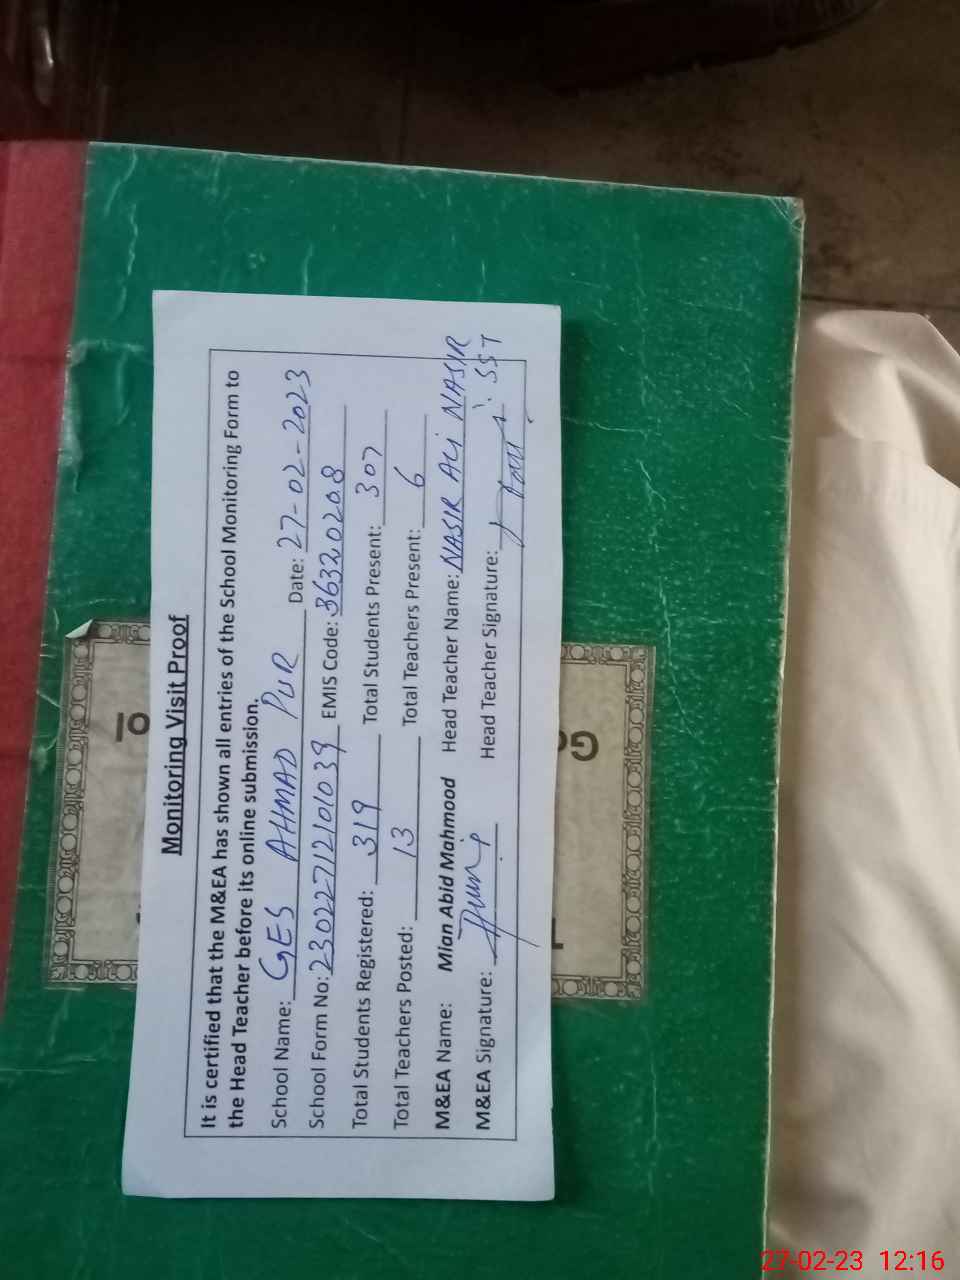 Monitoring Visit Proof
It is certified that the M&EA has shown all entries of the School Monitoring Form to
the Head Teacher before its online submission.
School Name: GES AHMAD PUR Date: 27-02-2023
School Form No: 23022712101039 EMIS Code: 36320208
Total Students Registered: 319 Total Students Present: 307
Total Teachers Posted: 13 Total Teachers Present: 6
M&EA Name: Mian Abid Mahmood Head Teacher Name: NASIR ALI NASIR
M&EA Signature: Head Teacher Signature: SST
27-02-23 12:16